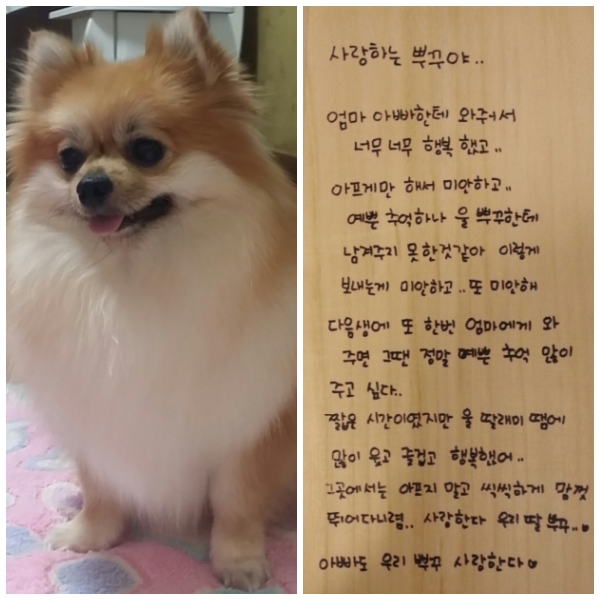 사랑하는 뿌꾸야..
엄마 아빠한테 와주어서
너무 너무 행복 했고..
아프게만 해서 미안하고..
예쁜 추억하나 울 뿌꾸한테
남겨주지 못한것같아 이렇게
보내는게 미안하고..또 미안해
다음생에 또 한번 엄마에게 와
주면 그땐 정말 예쁜 추억 많이
주고 싶다..
짧은 시간이였지만 울 딸래미 땜에
많이 웃고 즐겁고 행복했어..
그곳에서는 아프지 말고 씩씩하게 맘껏
뛰어다니렴.. 사랑한다 우리 딸 뿌꾸..♥
아빠도 우리 뿍꾸 사랑한다♥